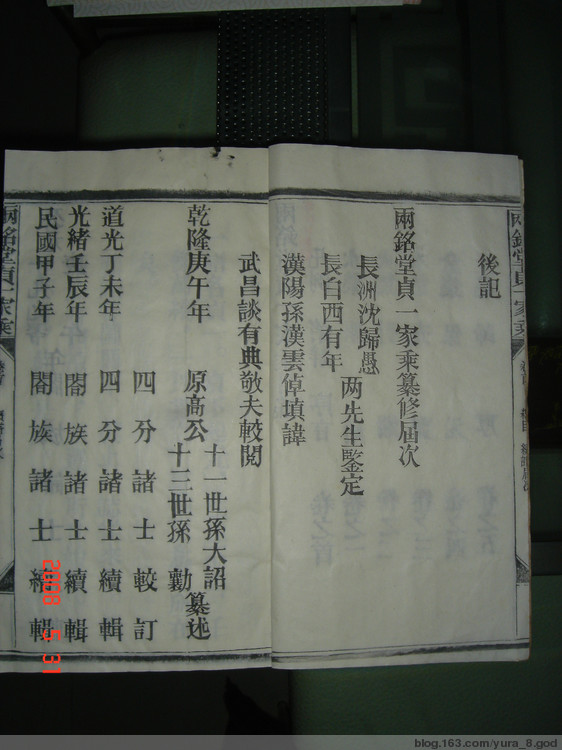 兩銘堂貞一家乘
後記
兩銘堂貞一家乘纂修屆次
長洲沈歸愚
長白西有年
两先生鑒定
漢陽孫漢雲倬填諱
武昌談有典敬夫較閱
乾隆庚午年 原高公
十一世孫大詔
十三世孫 勷
纂述
四分諸士較訂
道光丁未年 四分諸士續輯
光緒壬辰年 闔族諸士續輯
民國甲子年 闔族諸士續輯
兩銘堂貞一家乘
2008 5 31
blog.163.com/yura_8.god